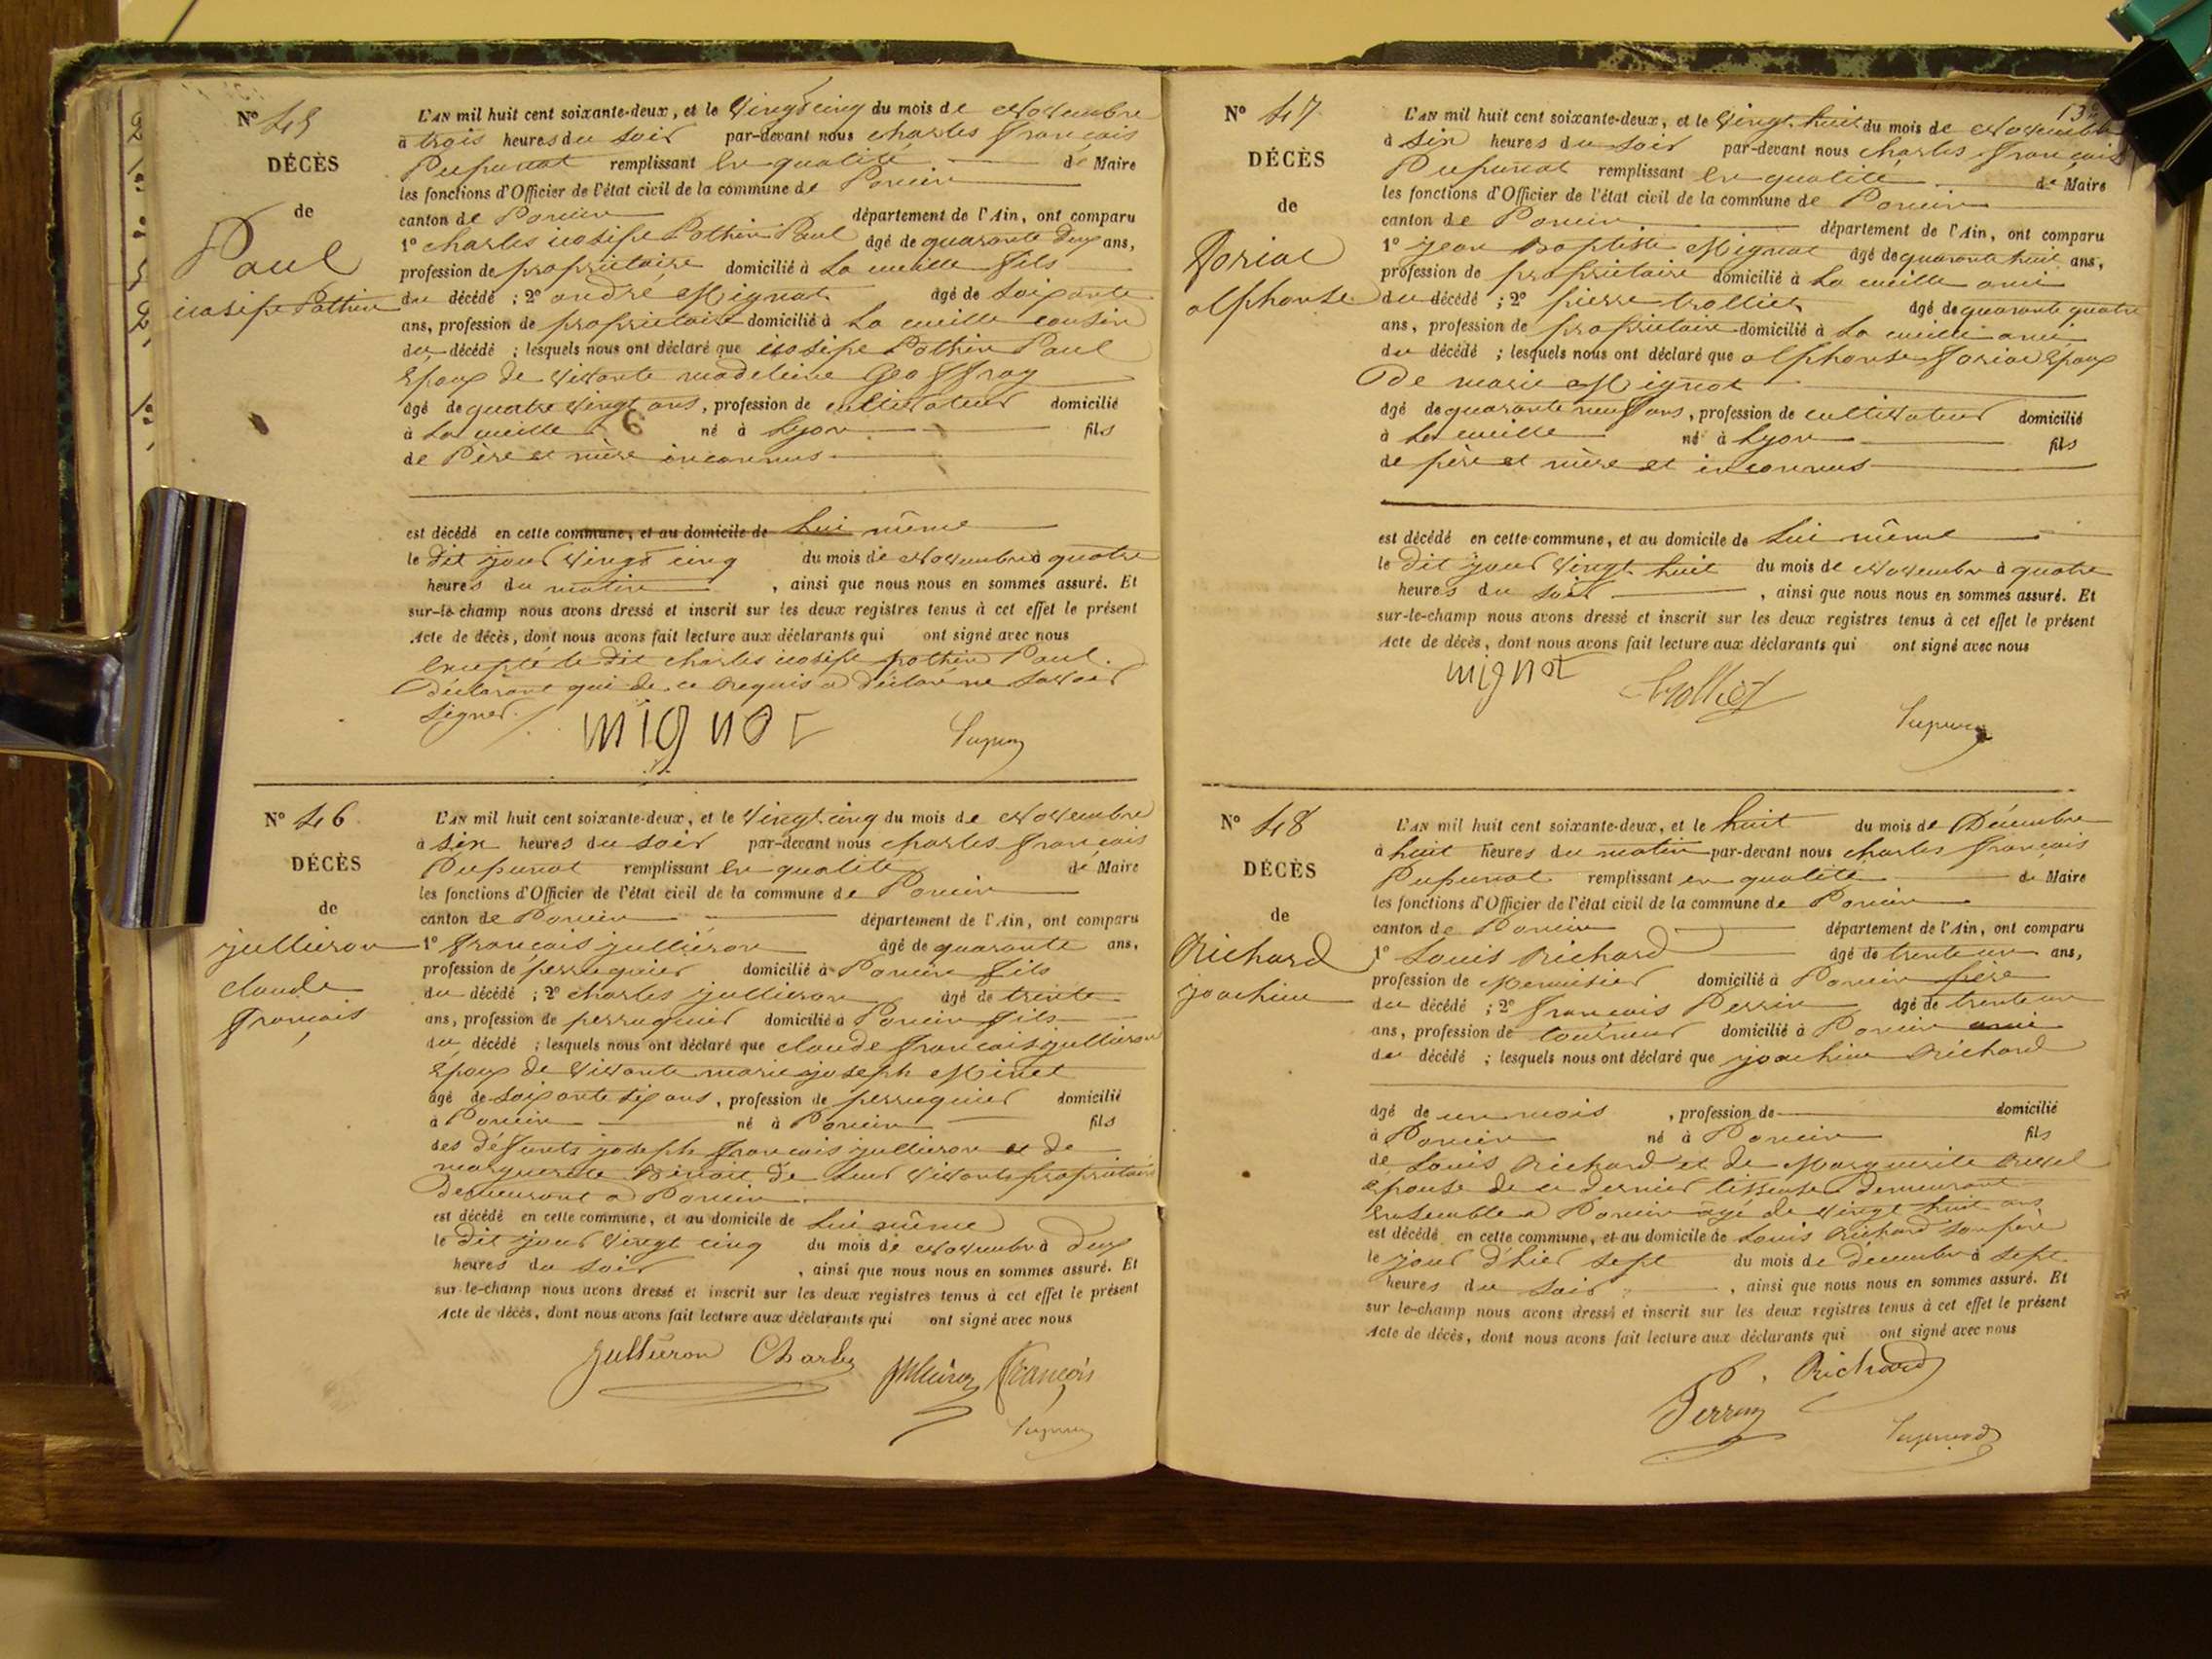 N° 45
DÉCÈS
de
Paul
iosife Pothin
L'AN mil huit cent soixante-deux, et le vingt cinq du mois de Novembre
à trois heures du soir par-devant nous charles françois
Pupunat remplissant en qualité de Maire
les fonctions d'Officier de l'état civil de la commune de Poncin
canton de Poncin département de l'Ain, ont comparu
1° charles iosife Pothin Paul âgé de quarante deux ans,
profession de propriétaire domicilié à La cueille fils
du décédé ; 2° andré Mignot âgé de soixante
ans, profession de propriétaire domicilié à La cueille cousin
du décédé ; lesquels nous ont déclaré que iosife Pothin Paul
Epoux de vivante madeleine Geoffray
âgé de quatre vingt ans, profession de cultivateur domicilié
à La cueille né à Lyon fils
de Père et mère inconnus
est décédé en cette commune, et au domicile de Lui même
le dit jour vingt cinq du mois de Novembre à quatre
heures du matin , ainsi que nous nous en sommes assuré. Et
sur-le-champ nous avons dressé et inscrit sur les deux registres tenus à cet effet le présent
Acte de décès, dont nous avons fait lecture aux déclarants qui ont signé avec nous
Excepté le dit charles iosife pothin Paul.
Déclarant qui de ce Requis a déclaré ne savoir
signer.
mignot
N° 46
DÉCÈS
de
jullieron
claude
françois
L'AN mil huit cent soixante-deux, et le vingt cinq du mois de Novembre
à six heures du soir par-devant nous charles françois
Pupunat remplissant en qualité de Maire
les fonctions d'Officier de l'état civil de la commune de Poncin
canton de Poncin département de l'Ain, ont comparu
1° françois jullieron âgé de quarante ans,
profession de perruquier domicilié à Poncin fils
du décédé ; 2° charles jullieron âgé de trente
ans, profession de perruquier domicilié à Poncin fils
du décédé ; lesquels nous ont déclaré que claude françois jullieron
Epoux de vivante marie joseph Minet
âgé de soixante six ans, profession de perruquier domicilié
à Poncin né à Poncin fils
des défunts joseph françois jullieron et de
marguerite Benoit de leur vivants propriétaires
demeurant a Poncin
est décédé en cette commune, et au domicile de Lui même
le dit jour vingt cinq du mois de Novembre à deux
heures du soir , ainsi que nous nous en sommes assuré. Et
sur le-champ nous avons dressé et inscrit sur les deux registres tenus à cet effet le présent
Acte de décès, dont nous avons fait lecture aux déclarants qui ont signé avec nous
Jullieron Charles Jullieron François
N° 47
DÉCÈS
de
foriat
alphonse
L'AN mil huit cent soixante-deux, et le vingt-huit du mois de Novembre
à six heures du soir par-devant nous charles françois
Pupunat remplissant en qualité de Maire
les fonctions d'Officier de l'état civil de la commune de Poncin
canton de Poncin département de l'Ain, ont comparu
1° jean Baptiste Mignot âgé de quarante huit ans,
profession de propriétaire domicilié à La cueille ami
du décédé ; 2° pierre trollier âgé de quarante quatre
ans, profession de propriétaire domicilié à La cueille ami
du décédé ; lesquels nous ont déclaré que alphonse foriat Epoux
De marie Mignot
âgé de quarante neuf ans, profession de cultivateur domicilié
à La cueille né à Lyon fils
de père et mère et inconnus
est décédé en cette commune, et au domicile de Lui même
le dit jour vingt-huit du mois de Novembre à quatre
heures du soir , ainsi que nous nous en sommes assuré. Et
sur-le-champ nous avons dressé et inscrit sur les deux registres tenus à cet effet le présent
Acte de décès, dont nous avons fait lecture aux déclarants qui ont signé avec nous
mignot trollier
N° 48
DÉCÈS
de
Richard
joachim
L'AN mil huit cent soixante-deux, et le huit du mois de Décembre
à huit heures du matin par-devant nous charles françois
Pupunat remplissant en qualité de Maire
les fonctions d'Officier de l'état civil de la commune de Poncin
canton de Poncin département de l'Ain, ont comparu
1° Louis Richard âgé de trente un ans,
profession de Menuisier domicilié à Poncin père
du décédé ; 2° françois Perrin âgé de trente un
ans, profession de tourneur domicilié à Poncin ami
du décédé ; lesquels nous ont déclaré que joachim Richard
âgé de un mois , profession de domicilié
à Poncin né à Poncin fils
de Louis Richard et de Marguerite Revel
épouse de ce dernier tisseuse demeurant
ensemble a Poncin agé de vingt huit ans
est décédé en cette commune, et au domicile de Louis Richard son père
le jour d'hier sept du mois de décembre à sept
heures du soir , ainsi que nous nous en sommes assuré. Et
sur le-champ nous avons dressé et inscrit sur les deux registres tenus à cet effet le présent
Acte de décès, dont nous avons fait lecture aux déclarants qui ont signé avec nous
Richard
Perrin